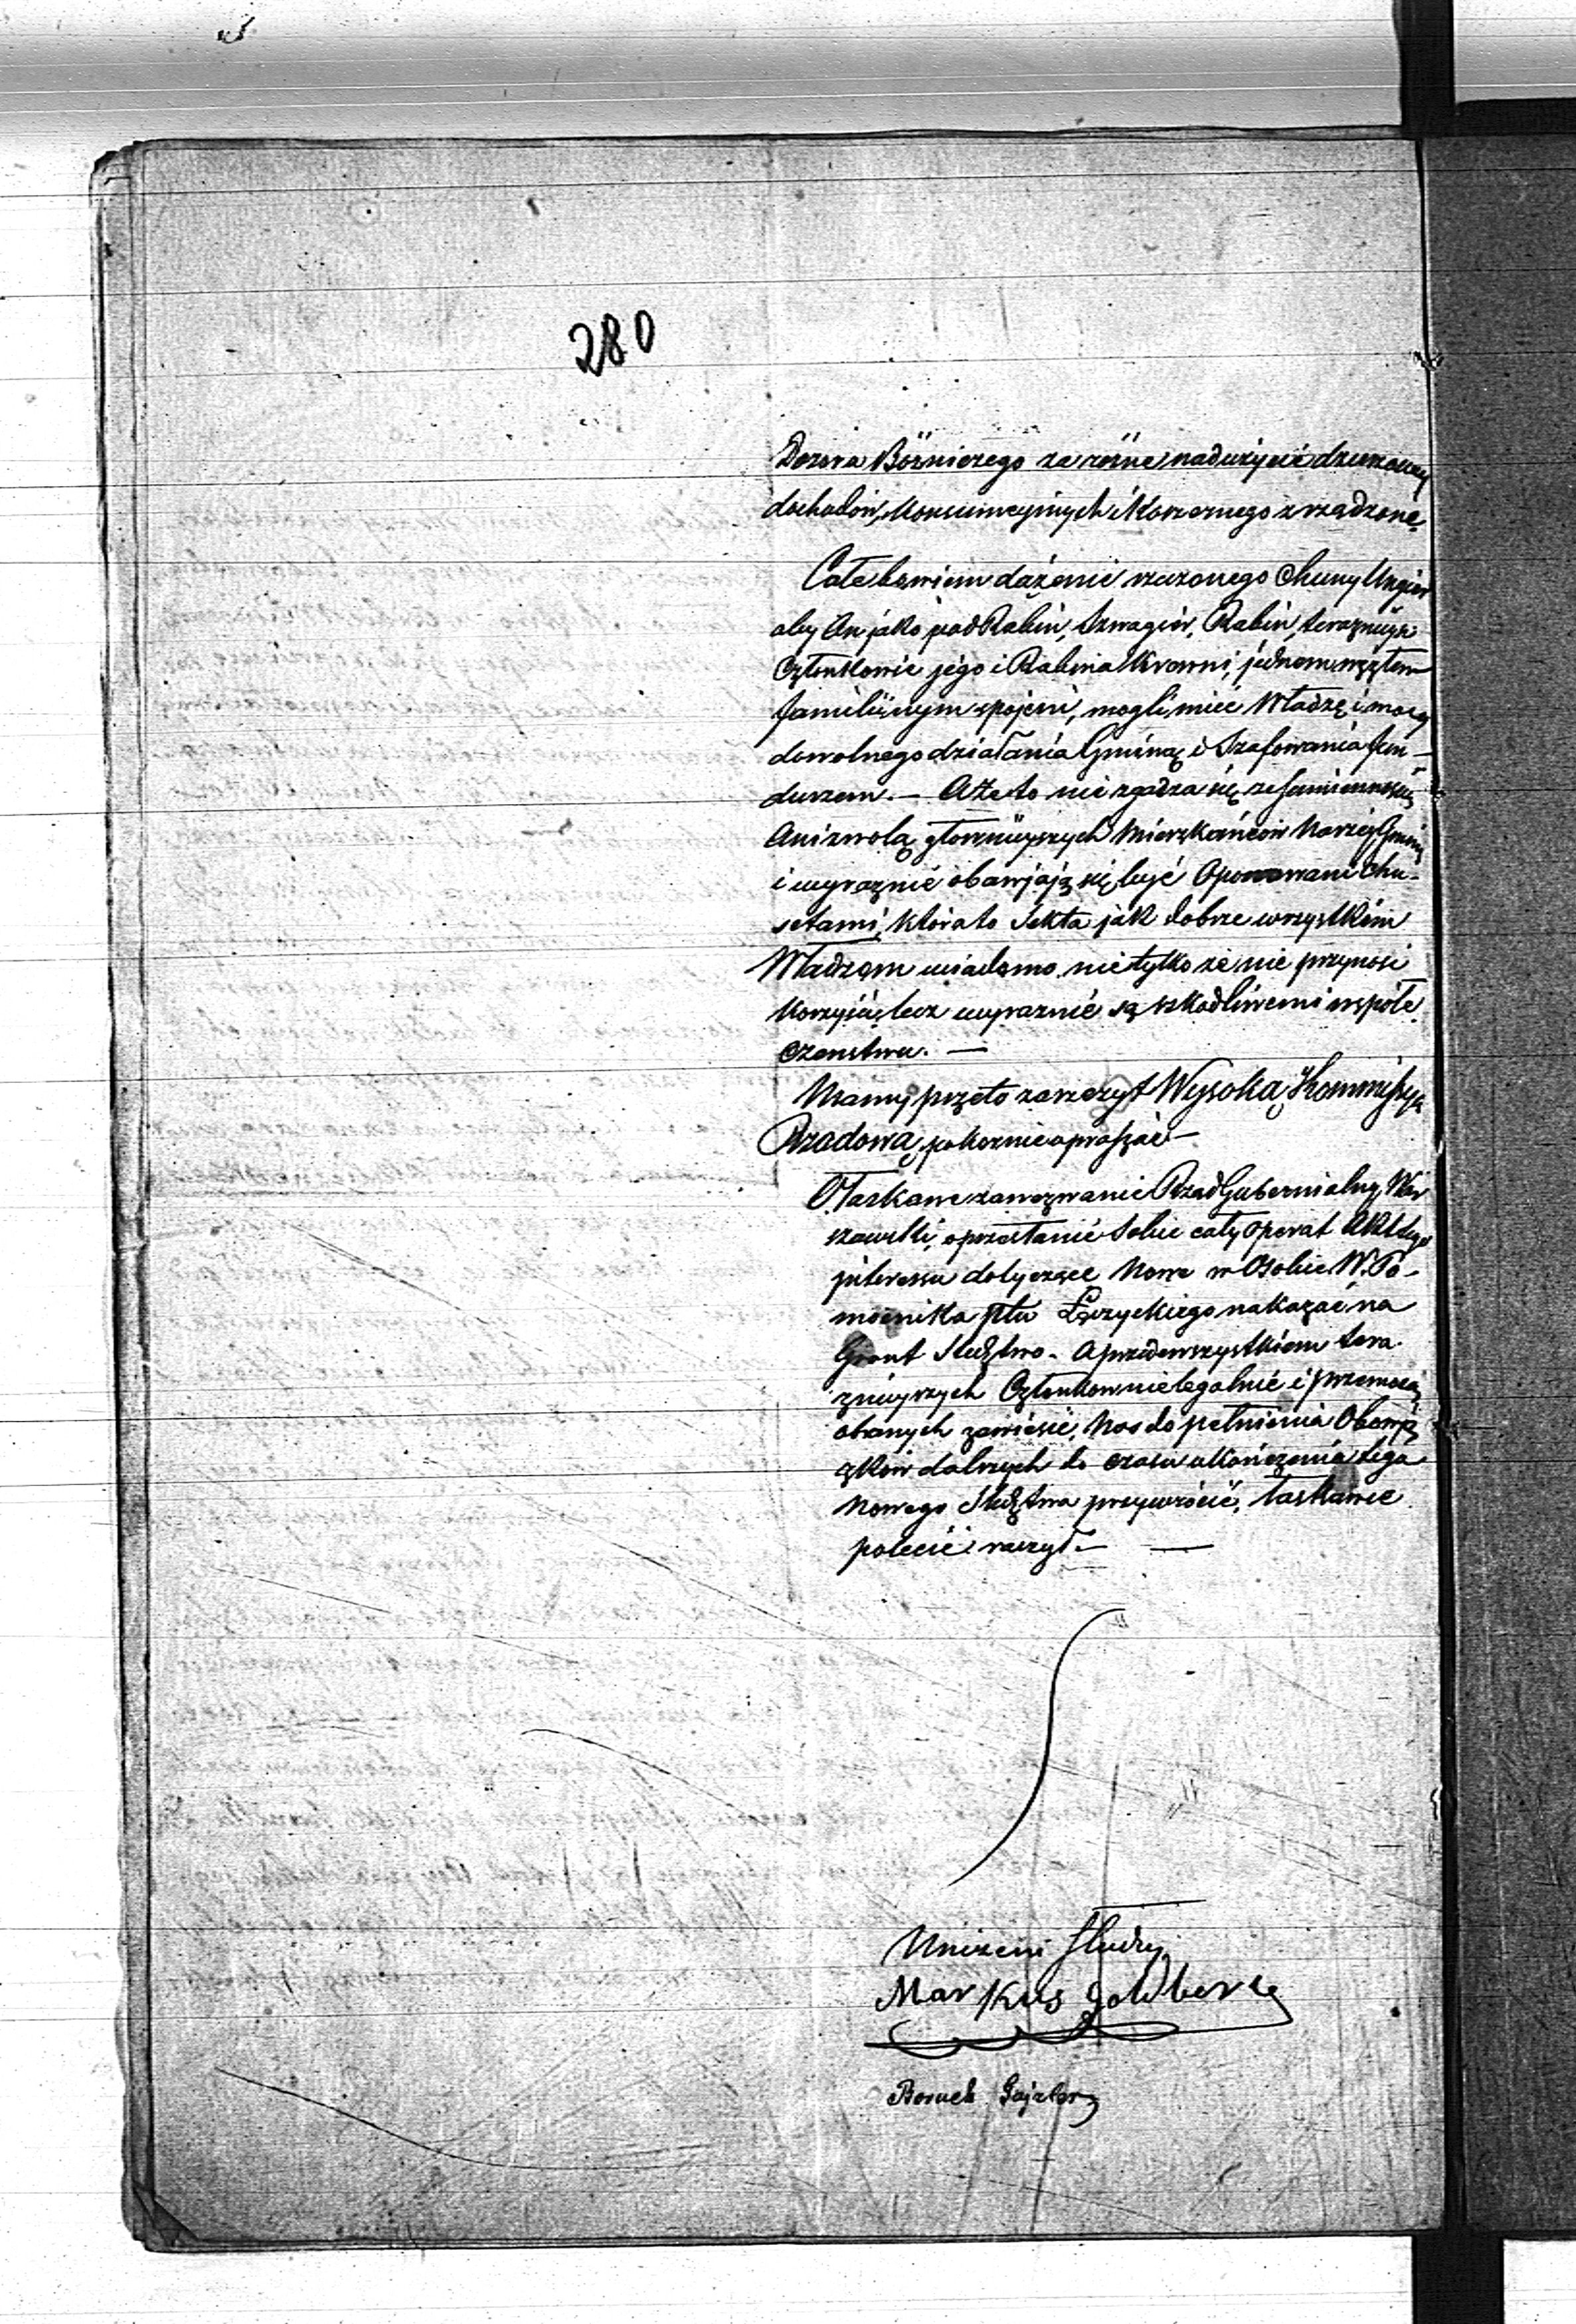 280
Dozora Bóżniczego za rożne nadużycie dzierzawy
dochodow, Konsumcyinych i Koszernego zrządzone.
Całe bowiem dążenie rzeczonego Chuny Unger
aby On jako podRabin, Szwagier, Rabin, terazniejsi
Członkowie jego i Rabina Krewni, jednem węzłem
familijnym spojeni, mogli mieć Władzę i mocy
dowolnego działania Gminą i Szafowania fun-
duszem. — A że to nie zgadza się ze sumiennością
Ani z wolą głownieyszych Mieszkańcow Naszej Gminy
i wyraznie obawjają się być Opanowani Chu-
setami, ktora to Sekta jak dobrze wszystkim
Władzom wiadomo, nie tylko że nie przynosi
Korzyści, lecz wyraznie są szkodliwemi wspołe
czenstwu. —
Mamy przeto zaszczyt Wysoką Kommissyą
Rządową, pokornie upraszać —
O łaskawe zawezwanie Rząd Gubernialny War
szawski, o przesłanie Sobie cały Operat Akt tego
interessu dotyczące Nowe w Osobie W. Po-
mocnika Ptu Łęczyckiego nakazać na
Grunt Sledztwo. A przedewszystkiem tera
znieyszych Członkow nielegalnie i przemocą
obranych zawiesić, Nas do pełnienia Obowią
zkow dalszych do czasu ukończenia tego
Nowego Sledztwa przywrócić, łaskawie
polecić raczył. —
Uniżeni Słudzy
Markus Goldberg
Boruch Gajzler